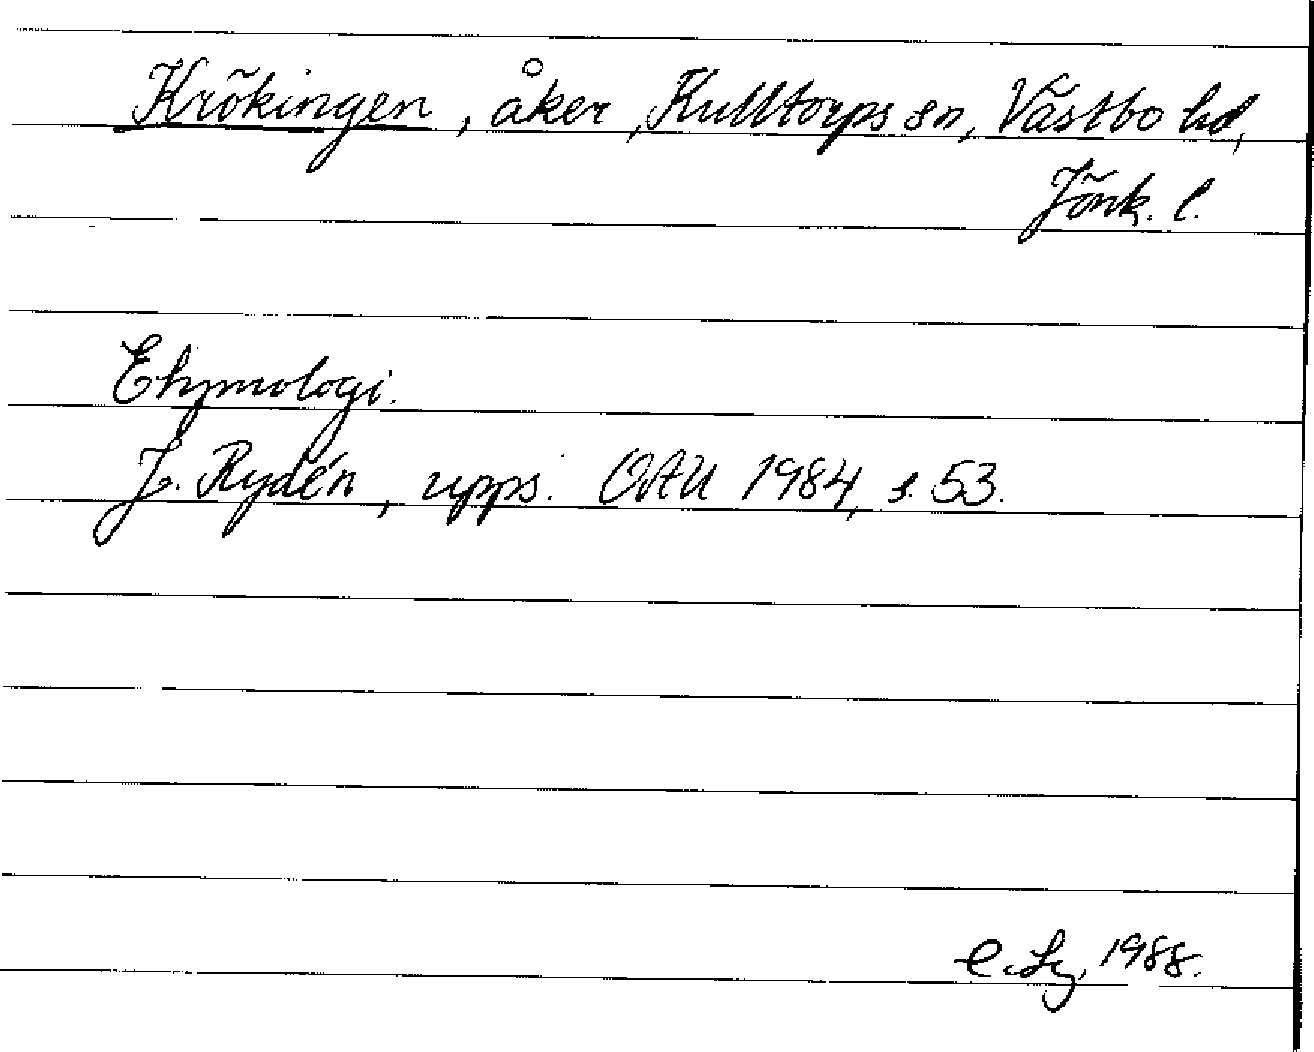 Krökingen, åker, Kulltorps sn, Västbo hd,
Jönk. l.
Etymologi.
J. Rydén, upps. OAU 1984, s. 53.
1988.